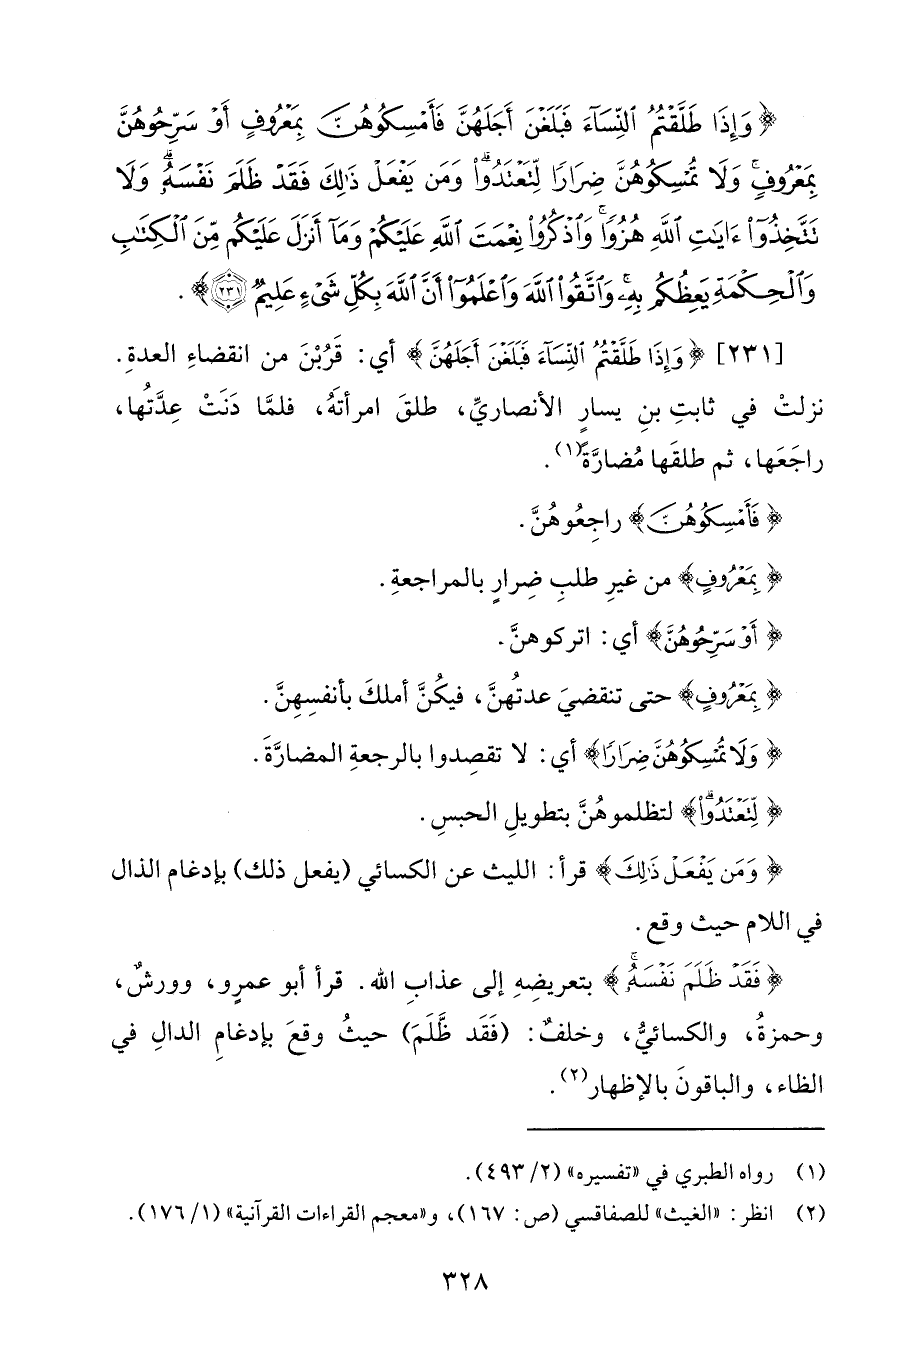 ﴿ وَإِذَا طَلَّقْتُمُ ٱلنِّسَآءَ فَبَلَغْنَ أَجَلَهُنَّ فَأَمْسِكُوهُنَّ بِمَعْرُوفٍ أَوْ سَرِّحُوهُنَّ
بِمَعْرُوفٍۚ وَلَا تُمْسِكُوهُنَّ ضِرَارًا لِّتَعْتَدُوا۟ۚ وَمَن يَفْعَلْ ذَٰلِكَ فَقَدْ ظَلَمَ نَفْسَهُۥۚ وَلَا
تَتَّخِذُوٓا۟ ءَايَٰتِ ٱللَّهِ هُزُوًاۚ وَٱذْكُرُوا۟ نِعْمَتَ ٱللَّهِ عَلَيْكُمْ وَمَآ أَنزَلَ عَلَيْكُم مِّنَ ٱلْكِتَٰبِ
وَٱلْحِكْمَةِ يَعِظُكُم بِهِۦۚ وَٱتَّقُوا۟ ٱللَّهَ وَٱعْلَمُوٓا۟ أَنَّ ٱللَّهَ بِكُلِّ شَىْءٍ عَلِيمٌ ۝٢٣١ ﴾ .
[٢٣١] ﴿ وَإِذَا طَلَّقْتُمُ ٱلنِّسَآءَ فَبَلَغْنَ أَجَلَهُنَّ ﴾ أي: قَرُبْنَ من انقضاءِ العدةِ.
نزلتْ في ثابتِ بنِ يسارٍ الأنصاريِّ، طلقَ امرأتَهُ، فلمَّا دَنَتْ عِدَّتُها،
راجَعَها، ثم طلقَها مُضارَّةً(١).
﴿ فَأَمْسِكُوهُنَّ ﴾ راجِعُوهُنَّ.
﴿ بِمَعْرُوفٍ ﴾ من غيرِ طلبِ ضِرارٍ بالمراجعةِ.
﴿ أَوْ سَرِّحُوهُنَّ ﴾ أي: اتركوهنَّ.
﴿ بِمَعْرُوفٍ ﴾ حتى تنقضيَ عدتُهنَّ، فيكُنَّ أملكَ بأنفسِهِنَّ.
﴿ وَلَا تُمْسِكُوهُنَّ ضِرَارًا ﴾ أي: لا تقصِدوا بالرجعةِ المضارَّةَ.
﴿ لِّتَعْتَدُوا۟ۚ ﴾ لتظلموهُنَّ بتطويلِ الحبسِ.
﴿ وَمَن يَفْعَلْ ذَٰلِكَ ﴾ قرأ: الليث عن الكسائي (يفعل ذلك) بإدغام الذال
في اللام حيث وقع.
﴿ فَقَدْ ظَلَمَ نَفْسَهُۥۚ ﴾ بتعريضِهِ إلى عذابِ الله. قرأ أبو عمرٍو، وورشٌ،
وحمزةُ، والكسائيُّ، وخلفٌ: (فَقَد ظَّلَمَ) حيثُ وقعَ بإدغامِ الدالِ في
الظاء، والباقونَ بالإظهار(٢).
(١) رواه الطبري في «تفسيره» (٢/ ٤٩٣).
(٢) انظر: «الغيث» للصفاقسي (ص: ١٦٧)، و«معجم القراءات القرآنية» (١/ ١٧٦).
٣٢٨